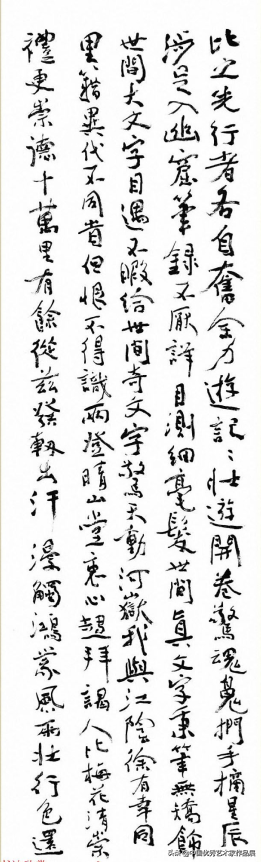 比之先行者各自奮全力遊記々壯遊開卷驚魂魄捫手摘星辰
涉足入幽窟筆錄不厭詳目測細毫髮世間真文字秉筆無矯飾
世間大文字目遇不暇給世間奇文字驚天動河嶽我與江陰徐有幸同
里籍異代不同旹但恨不得識兩登晴山堂衷心趨拜謁人比梅花清崇
禮更崇德十萬里有餘從茲發軔出汗漫觸鴻蒙風雨壯行色還
头条@中国优秀艺术家作品展